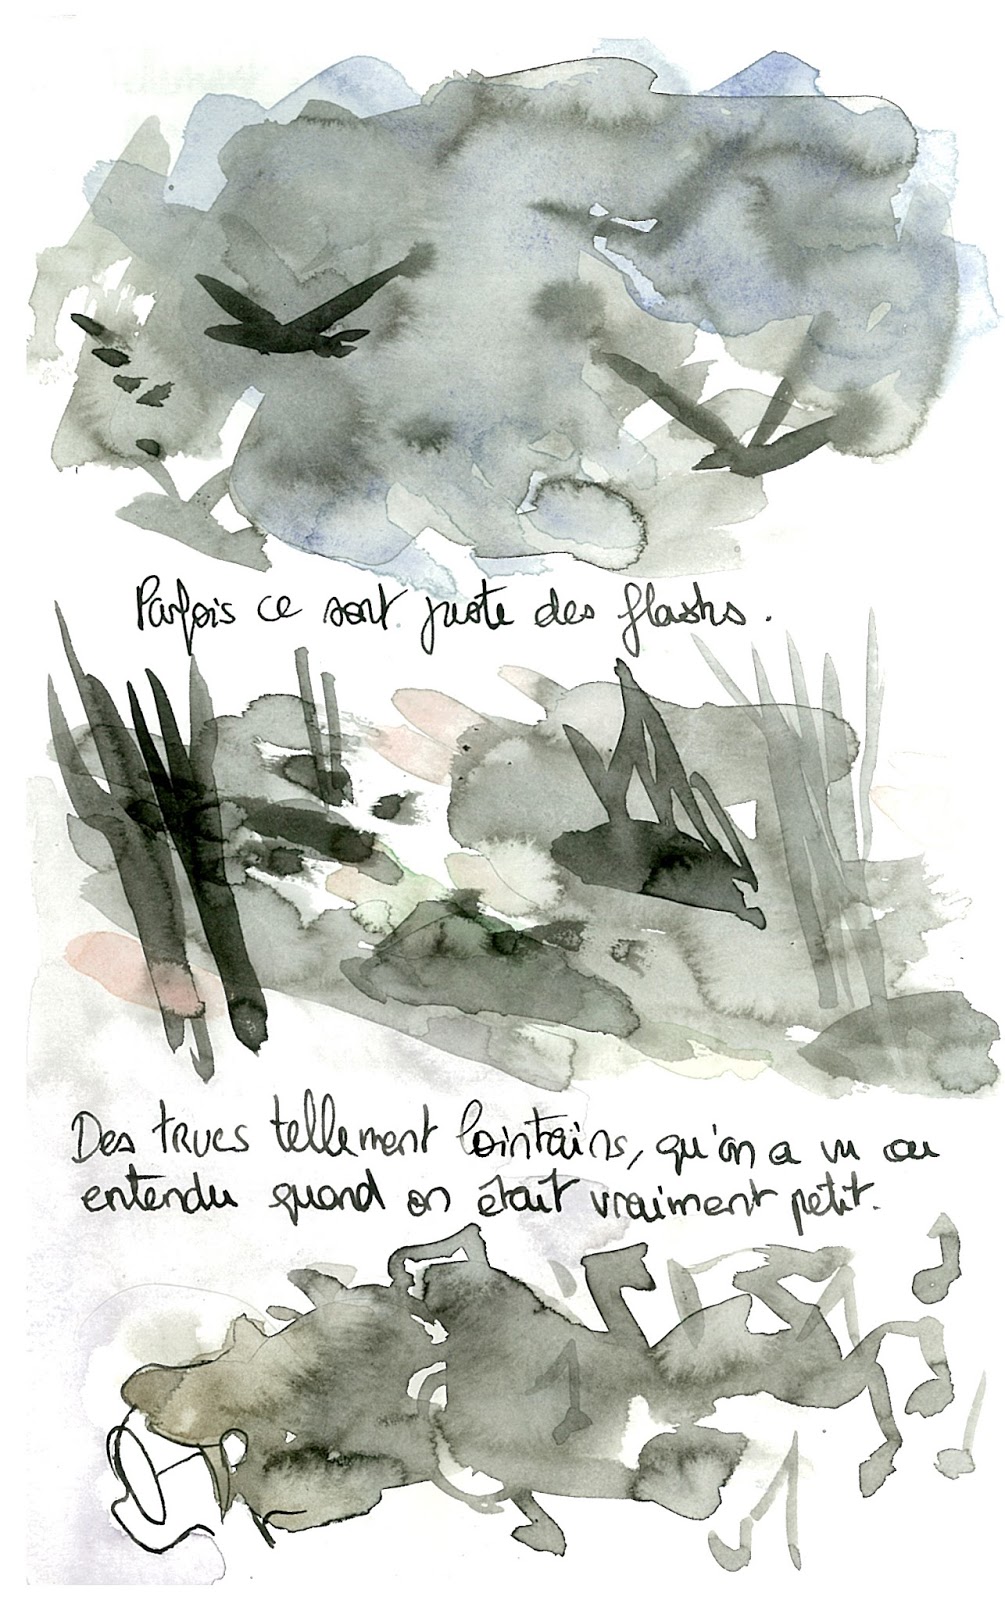 Parfois ce sont juste des flashs.
Des trucs tellement lointains, qu'on a vu ou
entendu quand on était vraiment petit.